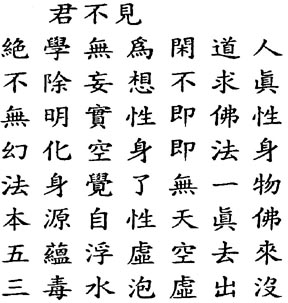 君不見
絶學無爲閑道人
不除妄想不求真
無明實性即佛性
幻化空身即法身
法身覺了無一物
本源自性天真佛
五蘊浮虛空去來
三毒水泡虛出沒